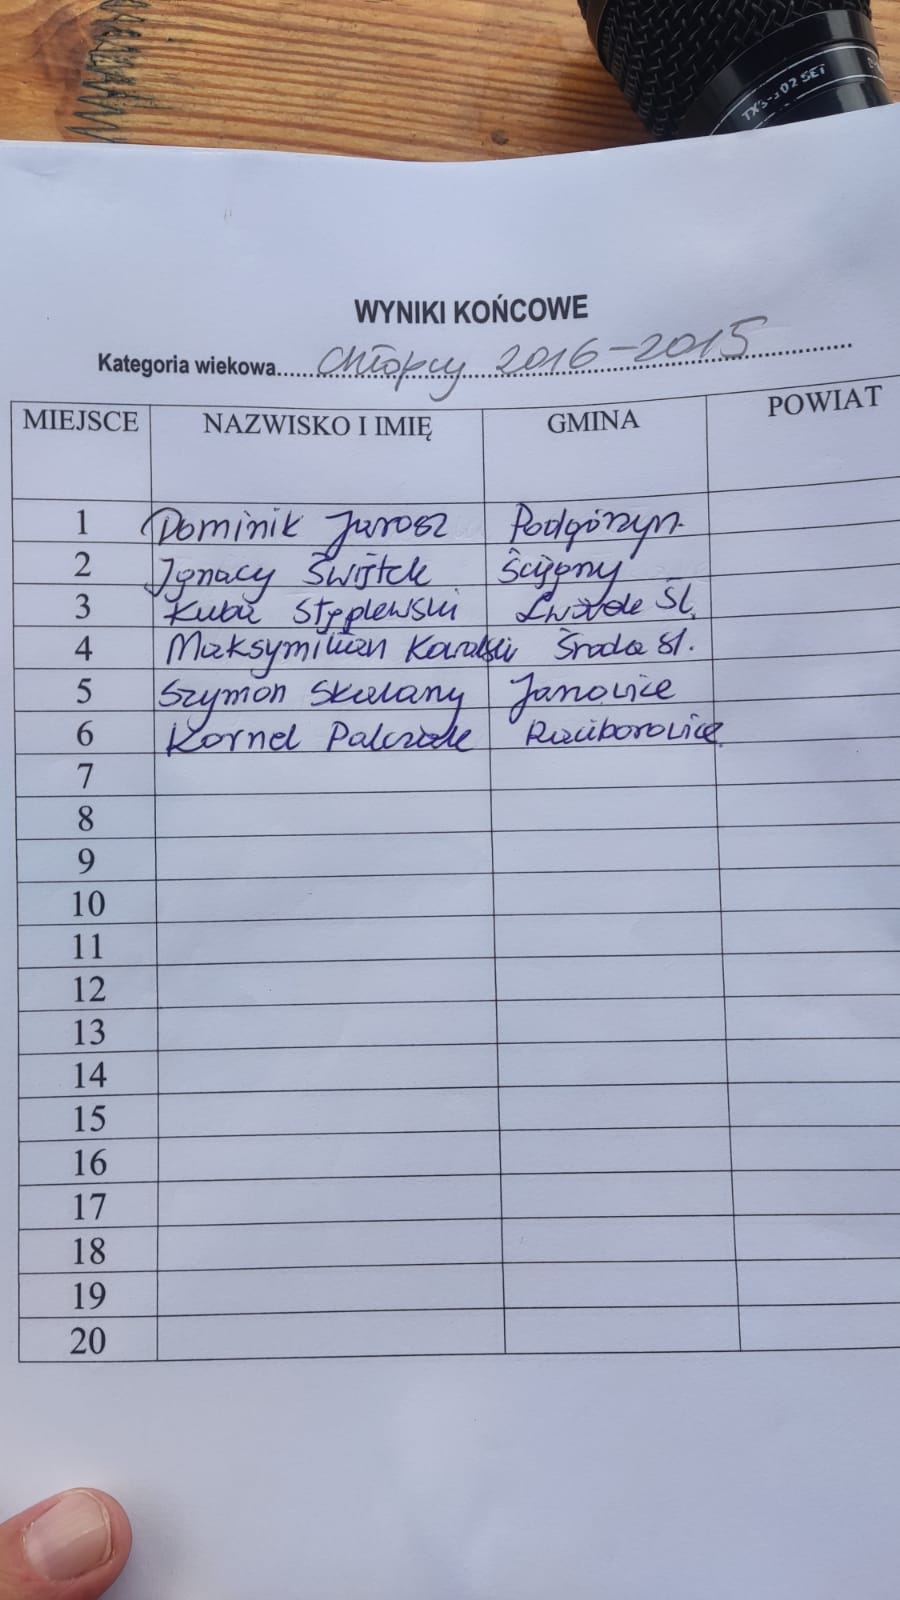 TXS-102 SET
WYNIKI KOŃCOWE
Kategoria wiekowa.....Chłopcy 2016-2015
MIEJSCE NAZWISKO I IMIĘ GMINA POWIAT
1 Dominik Jarosz Podgórzyn
2 Ignacy Świątek Ścijeny
3 Kuba Stęplewski Lwówek Śl.
4 Maksymilian Kowalski Środa Śl.
5 Szymon Skalany Janowice
6 Kornel Palczak Raciborowice
7
8
9
10
11
12
13
14
15
16
17
18
19
20